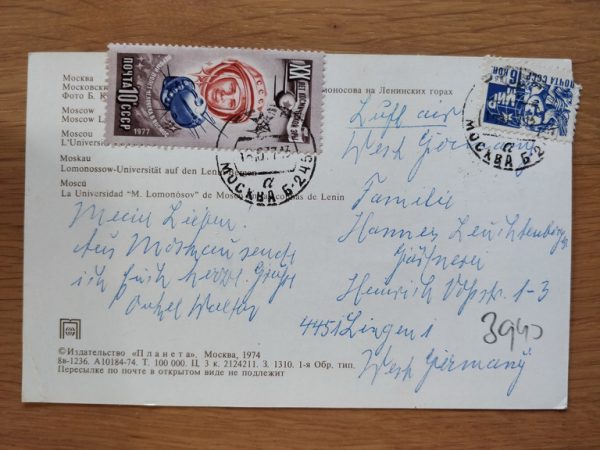 Москва
Московски
моносова на Ленинских горах
Фото Б.
Moscow
Moscow L
Moscou
L'Universi
Moskau
Lomonossow-Universität auf den Len
Moscú
La Universidad "M. Lomonósov" de Mosc de Lenin
XX
ПОЧТА 10К СССР
1977
СССР
МОСКВА Б-245
а
16 КОП
ПОЧТА СССР
МИР
МОСКВА Б-245
а
Luft air
West Germany
Familie
Hannes Leuchtenberg
Gärtnerei
Heinrich Voßstr. 1-3
4451 Lingen 1
West Germany
Mein Lieben.
Aus Moskau sende
ich Euch herzl. Grüße
Onkel Walter
3940
©Издательство «Планета». Москва, 1974
8в-1236. А10184-74. Т. 100 000. Ц. 3 к. 2124211. З. 1310. 1-я Обр. тип.
Пересылке по почте в открытом виде не подлежит